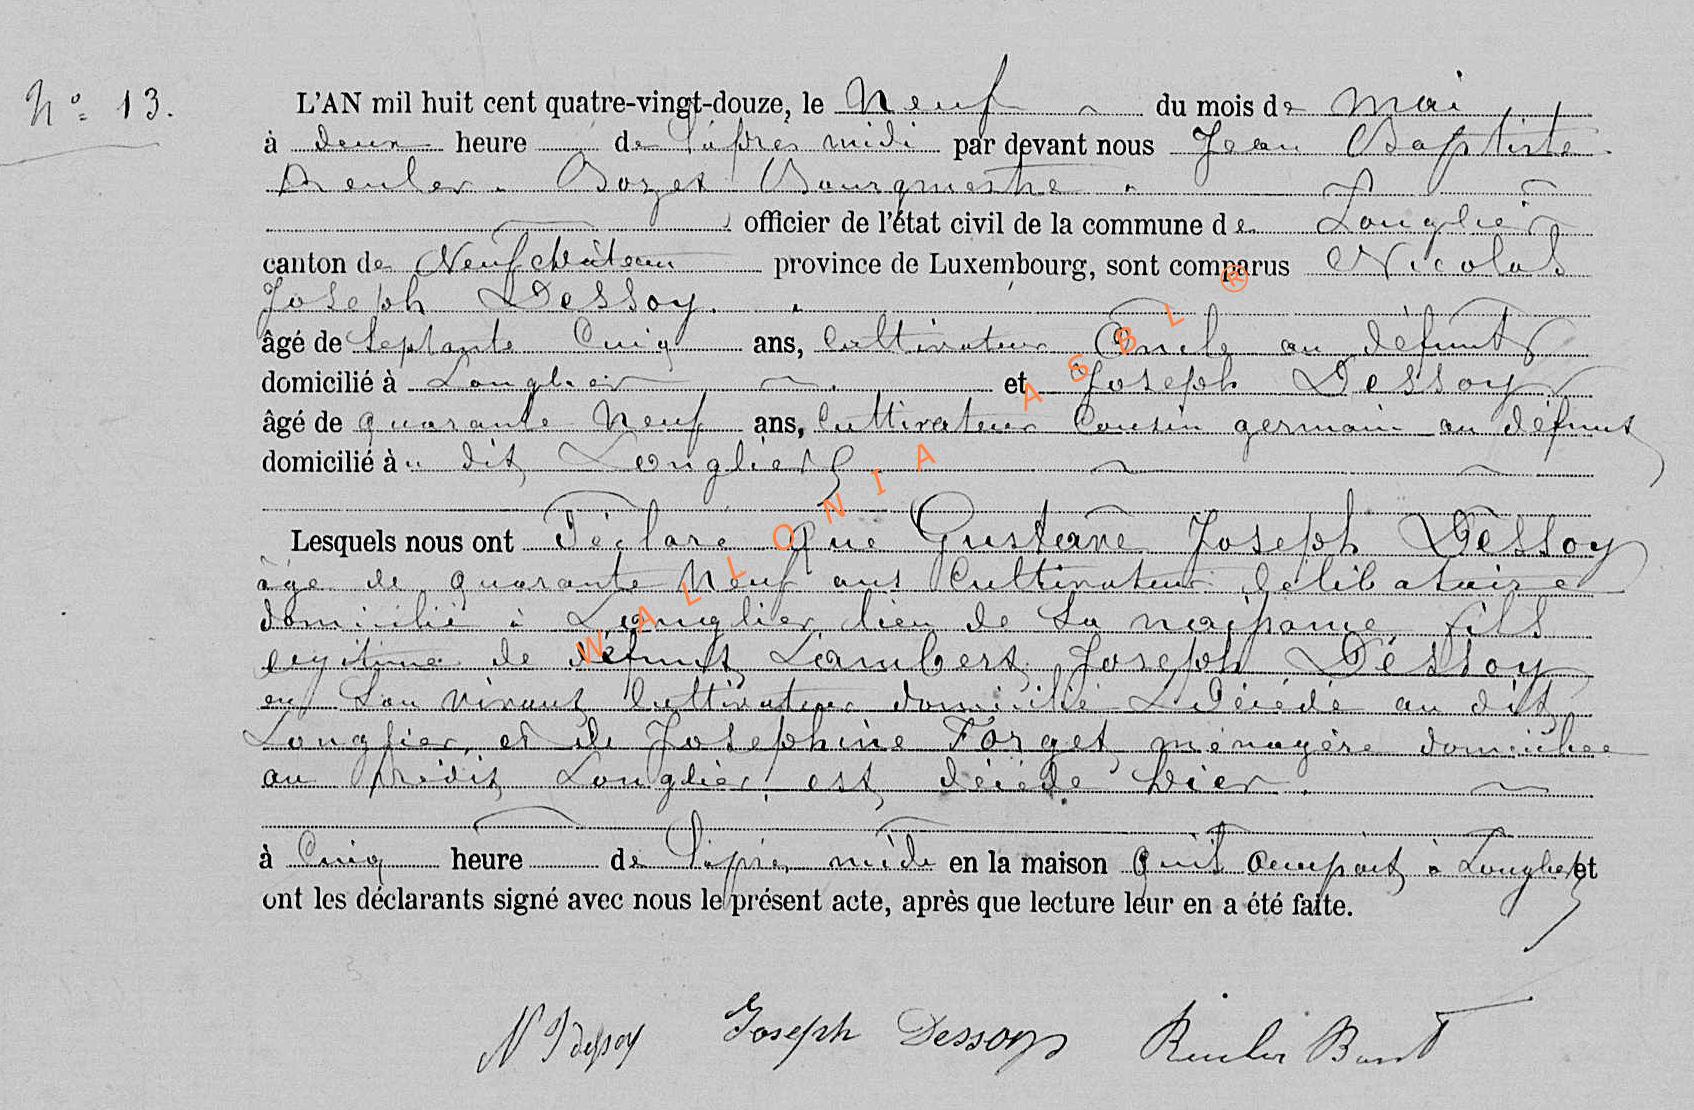 N° 13.
L'AN mil huit cent quatre-vingt-douze, le Neuf du mois de Mai
à deux heure de l'après midi par devant nous Jean Baptiste
Reuler Bozet Bourgmestre
officier de l'état civil de la commune de Longlier
canton de Neufchâteau province de Luxembourg, sont comparus Nicolas
Joseph Dessoy.
âgé de Septante Cinq ans, Cultivateur Oncle au défunt
domicilié à Longlier et Joseph Dessoy
âgé de quarante Neuf ans, Cultivateur Cousin germain au défunt
domicilié àu dit Longlier
Lesquels nous ont Déclaré Que Gustave Joseph Dessoy
âgé de quarante Neuf ans Cultivateur Célibataire
domicilié à Longlier lieu de Sa naissance fils
légitime de défunt Lambert Joseph Dessoy
en Son vivant Cultivateur domicilié & Décédé au dit
Longlier, et de Josephine Forget ménagère domiciliée
au prédit Longlier, est décédé hier.
à Cinq heure de l'après midi en la maison qu'il occupait à Longlier et
ont les déclarants signé avec nous le présent acte, après que lecture leur en a été faite.
N J dessoy Joseph Dessoy Reuler Bozet
WALLONIA ASBL ®